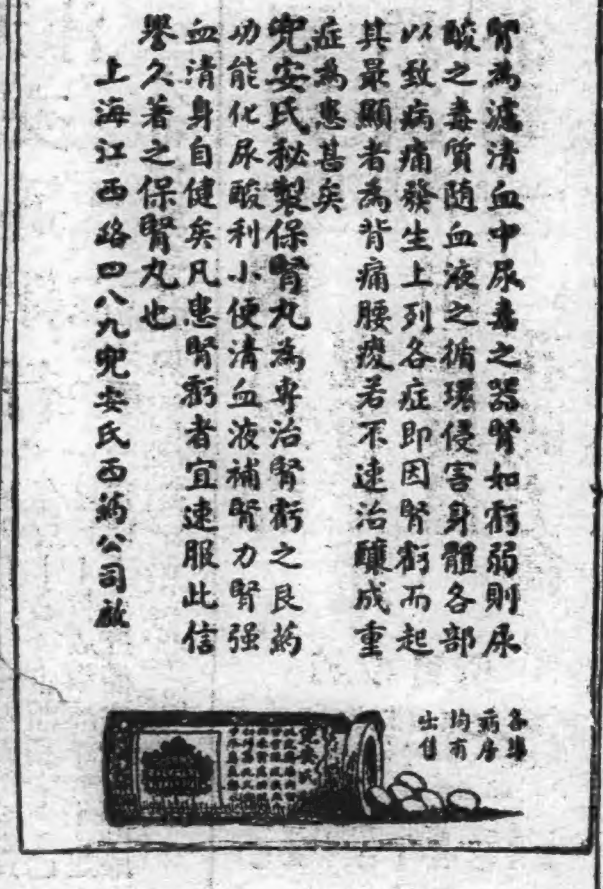 腎為濾清血中尿毒之器腎如虧弱則尿
酸之毒質随血液之循環侵害身體各部
以致病痛發生上列各症即因腎虧而起
其最顯者為背痛腰痠若不速治釀成重
症為患甚矣
兜安氏秘製保腎丸為專治腎虧之良葯
功能化尿酸利小便清血液補腎力腎强
血清身自健矣凡患腎虧者宜速服此信
譽久著之保腎丸也
上海江西路四八九兜安氏西葯公司啟
各藥
病房
均有
出售